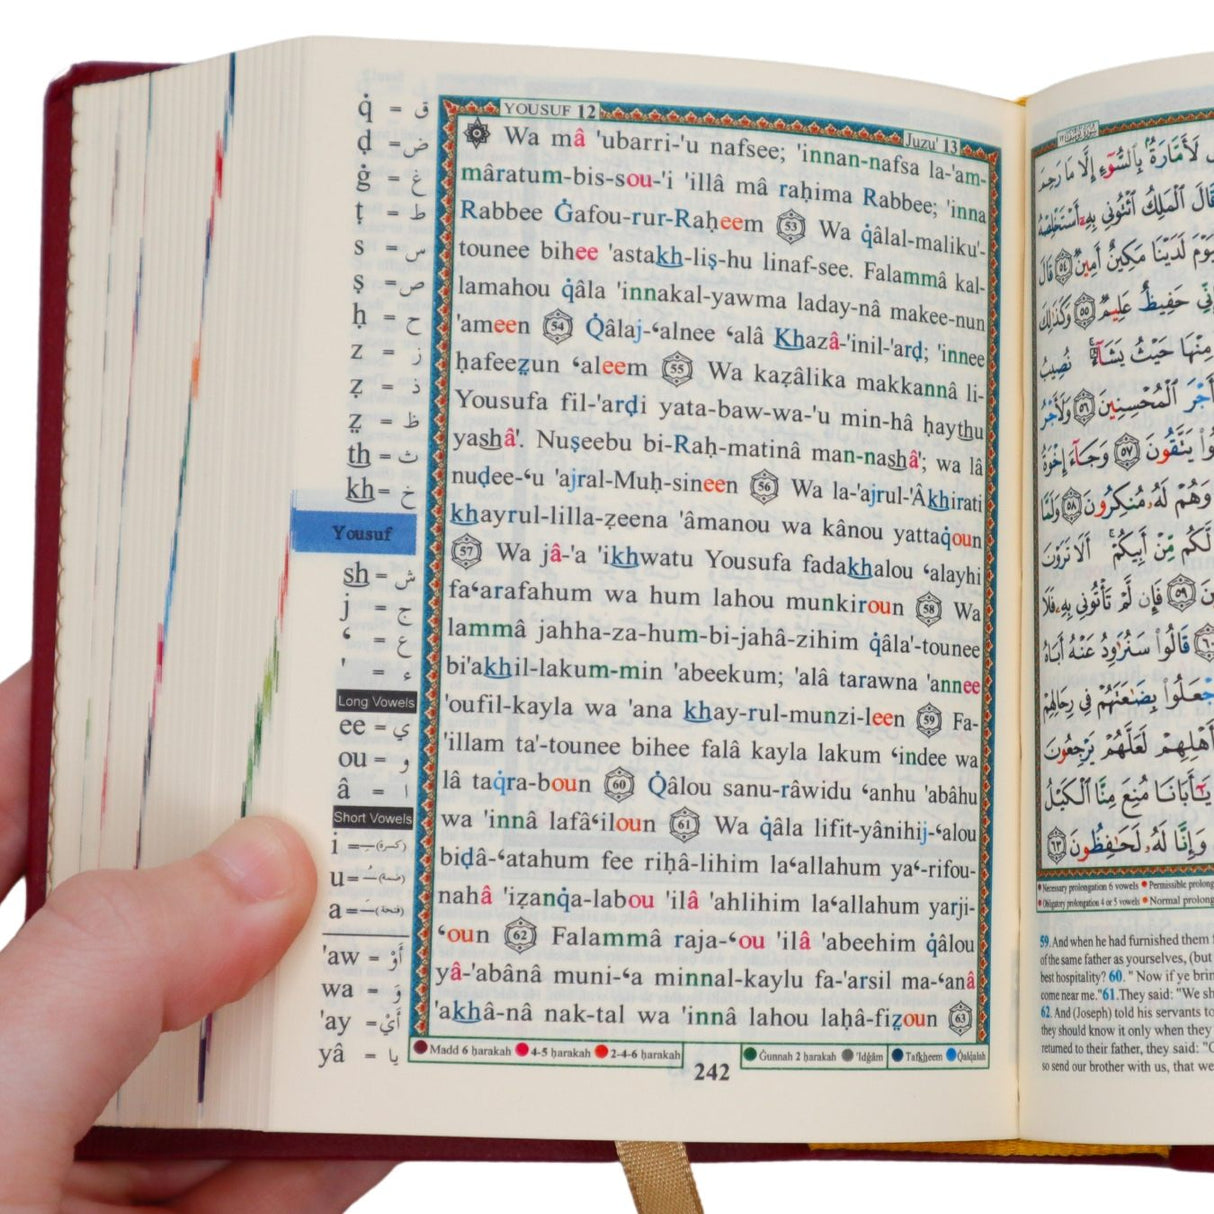 YOUSUF 12
Juzu' 13
Wa mâ 'ubarri-'u nafsee; 'innan-nafsa la-'am-
mâratum-bis-sou-'i 'illâ mâ raḥima Rabbee; 'inna
Rabbee Ġafou-rur-Raḥeem 53 Wa q̇âlal-maliku'-
tounee bihee 'astakh-liṣ-hu linaf-see. Falammâ kal-
lamahou q̇âla 'innakal-yawma laday-nâ makee-nun
'ameen 54 Q̇âlaj-ʻalnee ʻalâ Khazâ-'inil-'arḍ; 'innee
ḥafeeẓun ʻaleem 55 Wa kaẓâlika makkannâ li-
Yousufa fil-'arḍi yata-baw-wa-'u min-hâ ḥaythu
yashâ'. Nuṣeebu bi-Raḥ-matinâ man-nashâ'; wa lâ
nuḍee-ʻu 'ajral-Muḥ-sineen 56 Wa la-'ajrul-'Âkhirati
khayrul-lilla-ẓeena 'âmanou wa kânou yattaq̇oun
57 Wa jâ-'a 'ikhwatu Yousufa fadakhalou ʻalayhi
faʻarafahum wa hum lahou munkiroun 58 Wa
lammâ jahha-za-hum-bi-jahâ-zihim q̇âla'-tounee
bi'akhil-lakum-min 'abeekum; 'alâ tarawna 'annee
'oufil-kayla wa 'ana khay-rul-munzi-leen 59 Fa-
'illam ta'-tounee bihee falâ kayla lakum ʻindee wa
lâ taq̇ra-boun 60 Q̇âlou sanu-râwidu ʻanhu 'abâhu
wa 'innâ lafâʻiloun 61 Wa q̇âla lifit-yânihij-ʻalou
biḍâ-ʻatahum fee riḥâ-lihim laʻallahum yaʻ-rifou-
nahâ 'iẓanq̇a-labou 'ilâ 'ahlihim laʻallahum yarji-
ʻoun 62 Falammâ raja-ʻou 'ilâ 'abeehim q̇âlou
yâ-'abânâ muni-ʻa minnal-kaylu fa-'arsil ma-ʻanâ
'akhâ-nâ nak-tal wa 'innâ lahou laḥâ-fiẓoun 63
Madd 6 ḥarakah 4-5 ḥarakah 2-4-6 ḥarakah
Ġunnah 2 ḥarakah 'Idġâm Tafkheem Q̇alq̇alah
242
q̇ = ق
ḍ = ض
ġ = غ
ṭ = ط
s = س
ṣ = ص
ḥ = ح
z = ز
ẓ = ذ
ẓ̤ = ظ
th = ث
kh = خ
Yousuf
sh = ش
j = ج
ʻ = ع
' = ء
Long Vowels
ee = ي
ou = و
â = ا
Short Vowels
i = ـِ (كسرة)
u = ـُ (ضمة)
a = ـَ (فتحة)
'aw = أَوْ
wa = وَ
'ay = أَيْ
yâ = يا
لَأَمَّارَةٌۢ بِٱلسُّوٓءِ إِلَّا مَا رَحِمَ
قَالَ ٱلْمَلِكُ ٱئْتُونِى بِهِۦٓ أَسْتَخْلِصْهُ
يَوْمَ لَدَيْنَا مَكِينٌ أَمِينٌ ٥٤ قَالَ
إِنِّى حَفِيظٌ عَلِيمٌ ٥٥ وَكَذَٰلِكَ
مِنْهَا حَيْثُ يَشَآءُ ۚ نُصِيبُ
أَجْرَ ٱلْمُحْسِنِينَ ٥٦ وَلَأَجْرُ
يَتَّقُونَ ٥٧ وَجَآءَ إِخْوَةُ
وَهُمْ لَهُۥ مُنكِرُونَ ٥٨ وَلَمَّا
لَّكُم مِّنْ أَبِيكُمْ ۚ أَلَا تَرَوْنَ
٥٩ فَإِن لَّمْ تَأْتُونِى بِهِۦ فَلَا
٦٠ قَالُوا۟ سَنُرَٰوِدُ عَنْهُ أَبَاهُ
ٱجْعَلُوا۟ بِضَٰعَتَهُمْ فِى رِحَالِهِمْ
أَهْلِهِمْ لَعَلَّهُمْ يَرْجِعُونَ
يَٰٓأَبَانَا مُنِعَ مِنَّا ٱلْكَيْلُ
وَإِنَّا لَهُۥ لَحَٰفِظُونَ ٦٣
Necessary prolongation 6 vowels Permissible prolong
Obligatory prolongation 4 or 5 vowels Normal prolong
59. And when he had furnished them
of the same father as yourselves, (but
best hospitality? 60. " Now if ye brin
come near me." 61. They said: "We sh
62. And (Joseph) told his servants to
they should know it only when they
returned to their father, they said: "O
so send our brother with us, that we